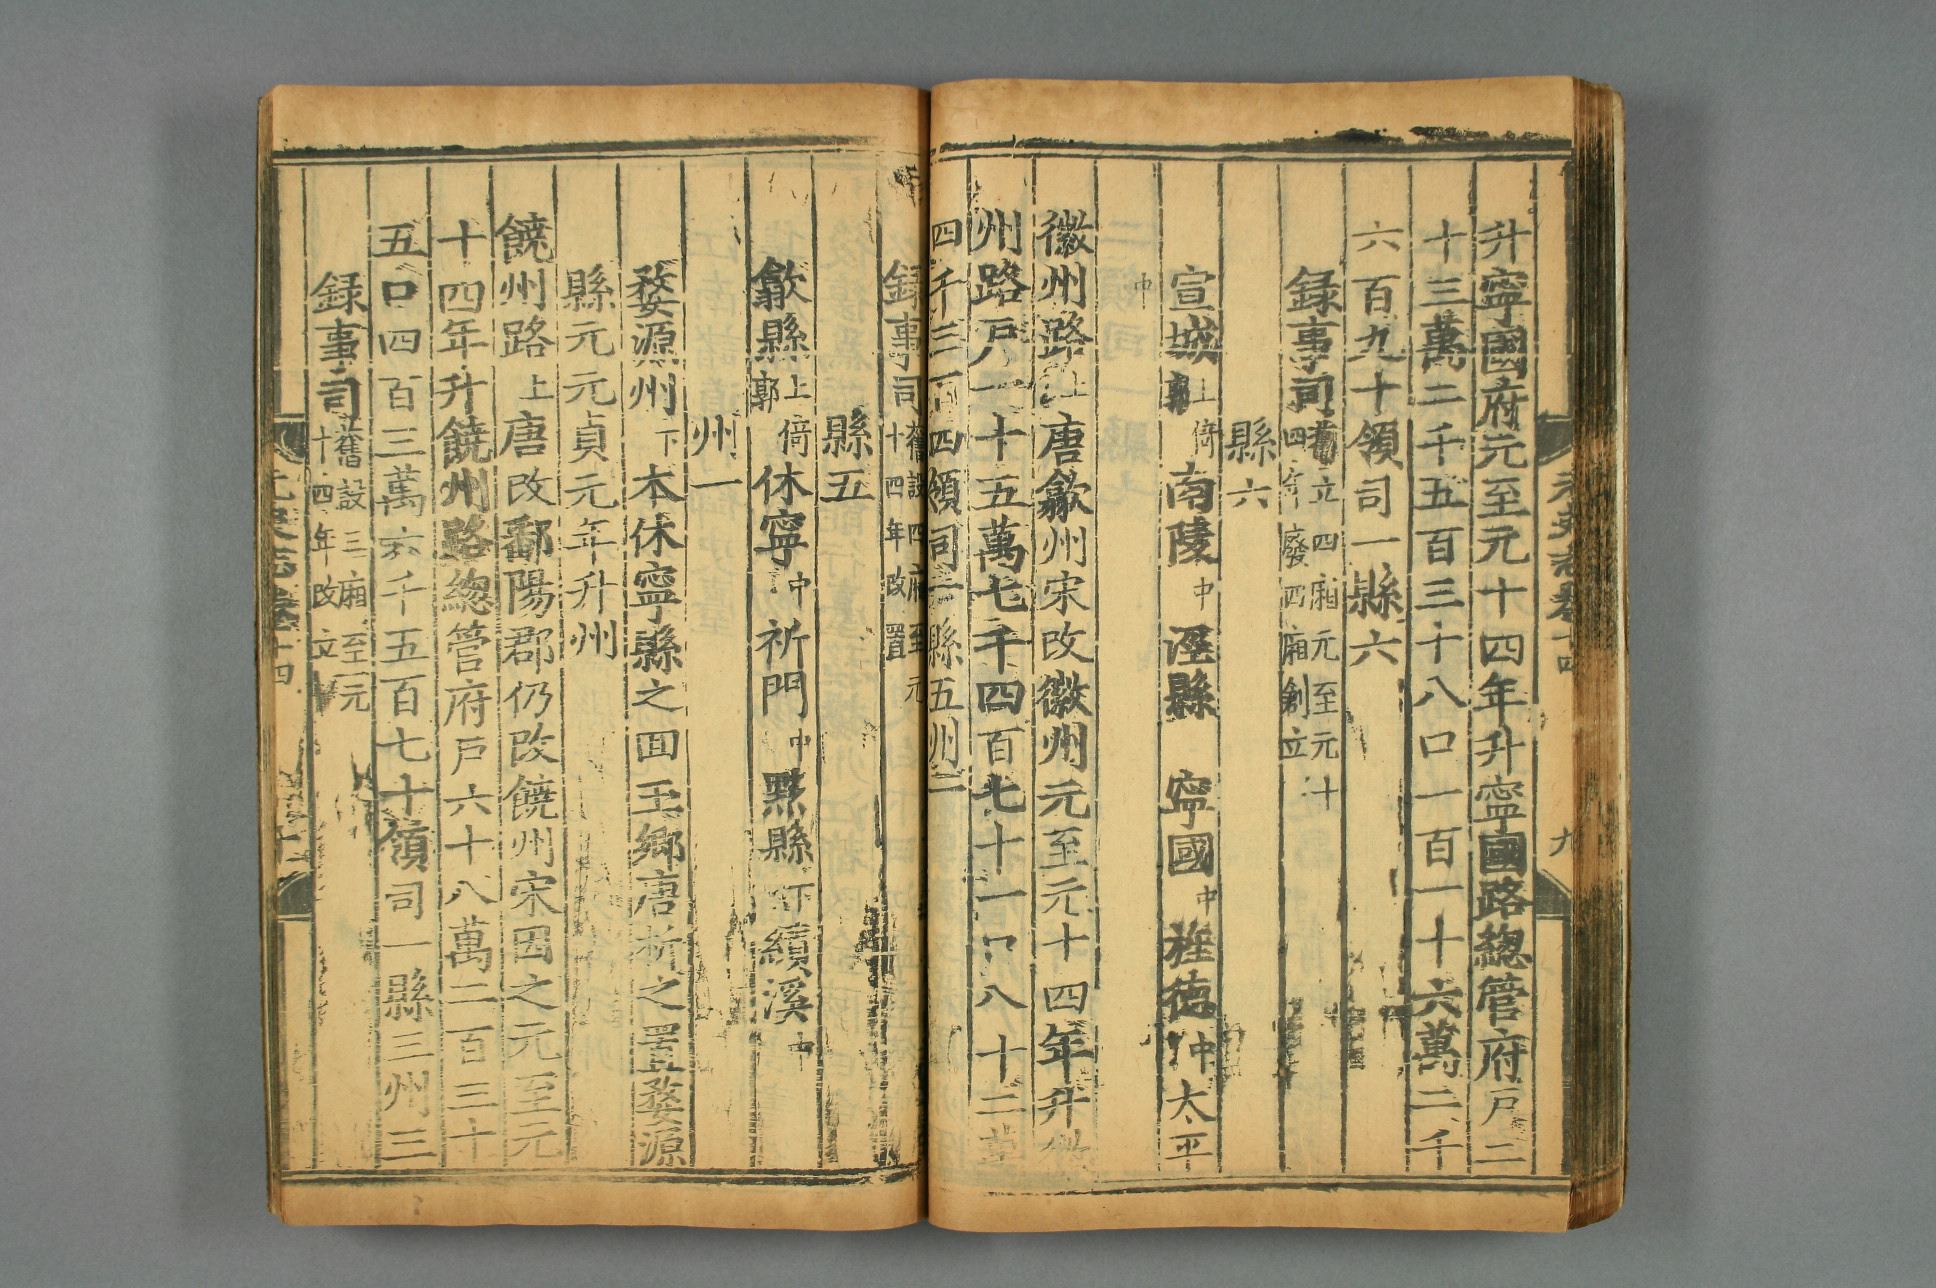 升寧國府元至元十四年升寧國路總管府戶二
十三萬二千五百三十八口一百一十六萬二千
六百九十領司一縣六
錄事司舊立四廂元至元十
四年廢四廂創立
縣六
宣城上倚郭南陵中涇縣寧國中旌德中太平
中
徽州路上唐歙州宋改徽州元至元十四年升徽
州路戶一十五萬七千四百七十一口八十二萬
四千三百四領司一縣五州一
錄事司舊設四府至元
十四年改置
縣五
歙縣上倚郭休寧中祈門中黟縣下績溪中
州一
婺源州下本休寧縣之回玉鄉唐析之置婺源
縣元元貞元年升州
饒州路上唐改鄱陽郡仍改饒州宋因之元至元
十四年升饒州路總管府戶六十八萬二百三十
五口四百三萬六千五百七十領司一縣三州三
錄事司舊設三廂至元
十四年改立
元史志卷十四
九